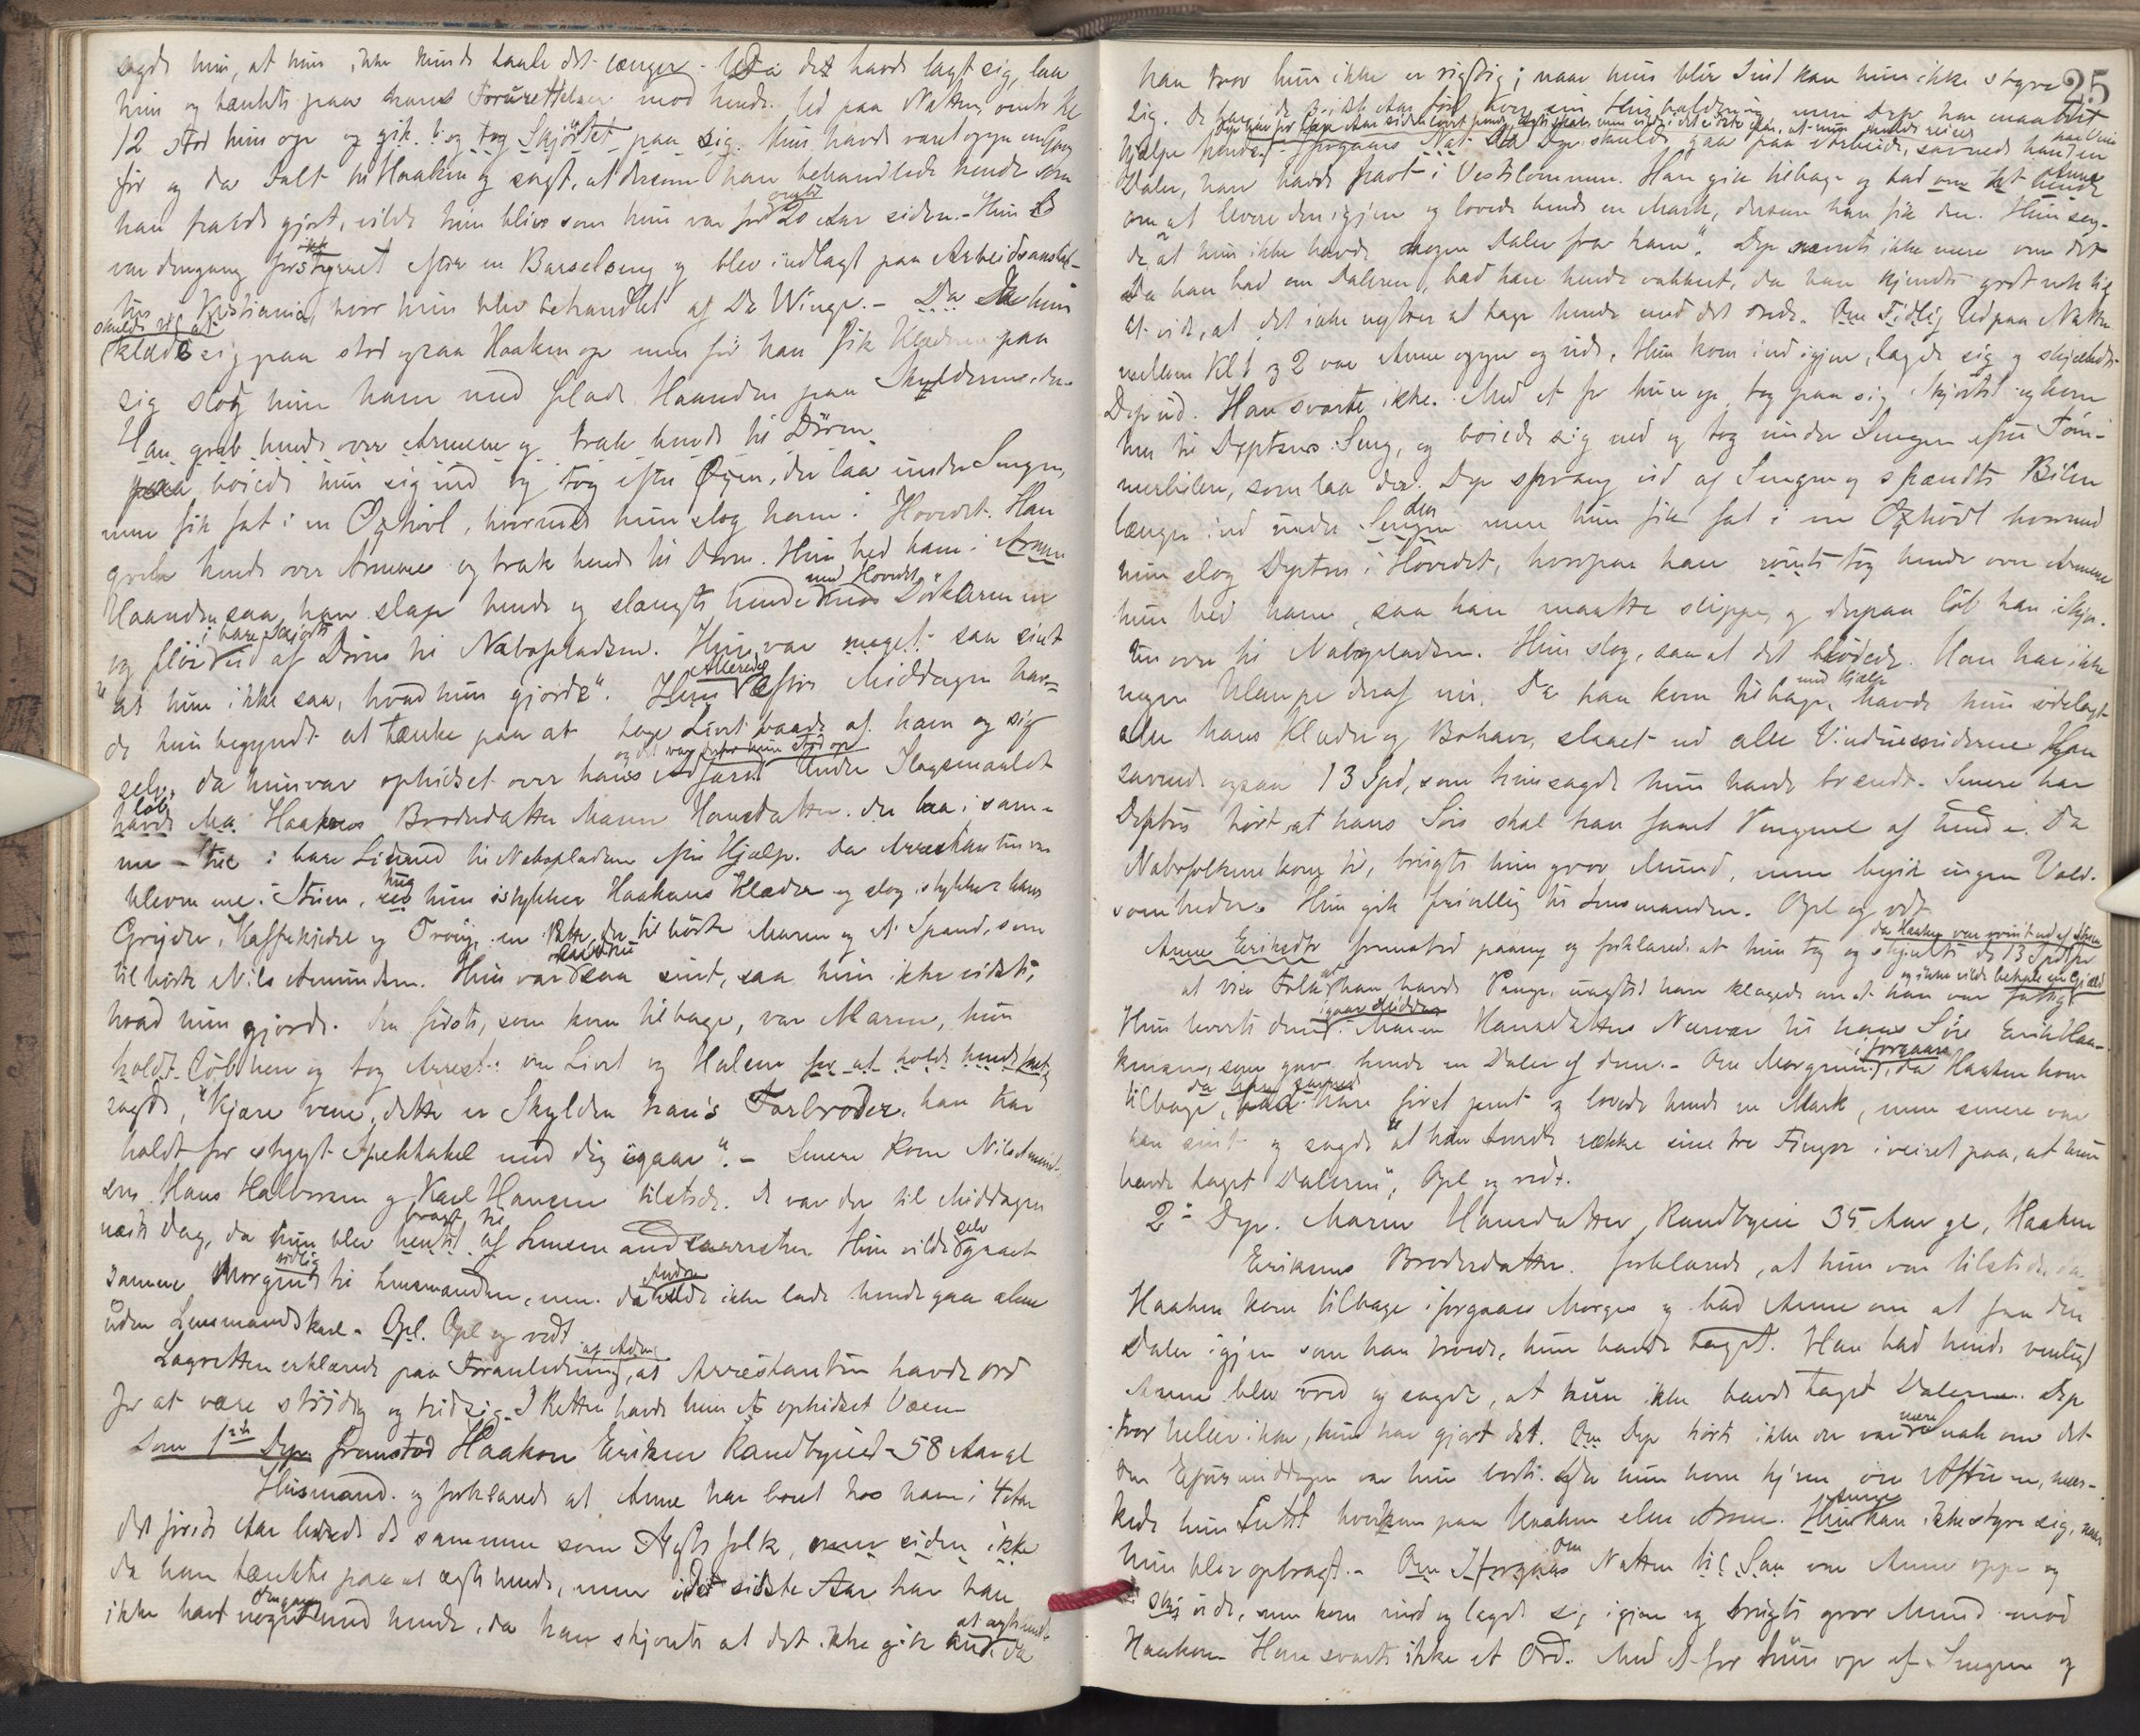 sagde hun, at hun ikke kunde taale det længer. Da de havde lagt sig, laa
hun og tænkte paa hans Forurettelser mod hende. Ud paa Natten, omtr Kl
12 stod hun op og gik ud og tog Skjörtet paa sig. Hun havde været oppe en Gang
för og da talt til Haakon og sagt, at dersom han behandlede hende som
han havde gjort, vilde hun blive som hun var for omtr 20 Aar siden. - Hun
var dengang forstyrret efter en Barselseng og blev indlagt paa Arbeidsanstal-
ten i Kristiania, hvor hun blev behandlet af Dr Winge. - Da hun
skulde til at
klæde sig paa stod ogsaa Haakon op men för han fik Klæderne paa
sig slog hun ham med flade Haanden paa Skuldrene.
Han greb hende over Armene og trak hende til Dören.
böiede hun sig ned og tog efter Öxen, der laa under Sengen,
men fik fat i en Oxhövl, hvormed hun slog ham i Hovedet. Han
greb hende over Armene og trak hende til Dören. Hun bed ham i Armen
med Hovedet
Haanden, saa han slap hende og slængte hende mod Dörkarmen
i bare Skjorte
og flöi ud af Dören til Nabopladsen. Hun var meget saa sint
"at hun ikke saa, hvad hun gjorde". Allerede Efter Middagen hav-
de hun begyndt at tænke paa at tage Livet baade af ham og sig
og det var derfor hun stod op
selv, da hun var ophidset over hans Adfærd. Under Slagsmaalet
löb
havde Haakons Broderdatter Maren Hansdatter der laa i sam-
me Stue i bare Linned til Nabopladsen efter Hjælp. Da Arrestantinden var
bleven ene i Stuen, hug hun istykker Haakons Klæder og slog istykker hans
Gryder, Kaffekjedel og Traug, en Bötte, der tilhörte Maren og et Spand, som
tilhörte Nils Amundsen. Hun var da saa sint, saa hun ikke vidste,
hvad hun gjorde. Den förste, som kom tilbage, var Maren, hun
holdt löb hen og tog Arrest: om Livet og Halsen for at holde hende fast og
sagde, "kjære vene, dette er Skylden han's Farbroder, han har
holdt for stygt Spektakel med dig igaar". - Senere kom Nils Amund-
sen Hans Halvorsen og Karl Hansen tilstede. De var der til Middagen
næste Dag, da hun blev bragt til af Lensmandsarresten. Hun vilde selv gaaet
samme Morgen tidlig til Lensmanden, men de Andre vilde ikke lade hende gaa alene
uden Lensmandskarl. Opl. Opl og vedt
Lagretten erklærede paa Foranledning af Adm, at Arrestantinden havde Ord
for at være stridig og hidsig. I Retten havde hun et ophidset Væsen
Som 1ste Dep. fremstod Haakon Eriksen Randbyeie 58 Aar gl
Husmand. og forklarede at Anne har boet hos ham i 4 Aar
det förste Aar levede de sammen som Ægtefolk, men siden ikke
da han tænkte paa at ægte hende, men i det sidste Aar har han
ikke havt noget med hende, da han skjönte at det ikke gik an at ægte hende. Da
25
han tror hun ikke er rigtig; naar hun blir sint kan hun ikke styre
sig. De havde de sidste Aar fört hver sin Husholdning men Dep. har maattet
hjælpe hende. Iforgaars Nat da Dep. skulde gaa paa Arbeide, savnede han en
Daler, han havde havt i Vestelommen. Han gik tilbage og bad Anne
om at levere den igjen og lovede hende en Mark, dersom han fik den. Hun sag-
de "at hun ikke havde nogen Daler fra ham". Dep. nævnte ikke mere om det
Da han bad om Daleren, bad han hende vakkert, da han kjendte godt nok til
at vide, at det ikke nytter at tage hende med det onde. Tidlig Ud paa Natten
mellem Kl 1 og 2 var Anne oppe og ude. Hun kom ind igjen, lagde sig og skjældte
Dep. ud. Han svarte ikke. Med et for hun op, tog paa sig Skjörtet og kom
hen til Deptens Seng, og böiede sig ned og tog under Sengen efter Töm-
merbilen, som laa der. Dep sprang ud af Sengen og spændte Bilen
længer ind under den men hun fik fat i en Oxhövl hvormed
hun slog Depten i Hovedet, hvorpaa han rundt tog hende over Armene
hun bed ham, saa han maatte slippe, og derpaa löb han i Skjor-
ten over til Nabopladsen. Hun slog, saa at det blödede. Han har ikke
nogen Ulempe deraf nu. Da han kom tilbage med Hjælp, havde hun ödelagt
alle hans Klæder og Bohave, slaaet ud alle Vinduesruderne. Han
savnede ogsaa 13 Spd, som hun sagde hun havde brændt. Senere har
Depten hört at hans Sön skal han faaet Pengene af hende. Da
Nabofolkene kom til, brugte hun grov Mund, men begik ingen Vold-
somheder. Hun gik frivillig til Lensmanden. Opl og vdt
Anne Eriksdtr fremstod paany og forklarede at hun tog og skjulte de 13 Spd for
da Haakon var sprunget ud af Stuen
at vise Folk at han havde Penge, uagtet han klagede over at han var fattig
og ikke vilde betale sin Gjæld
Hun leverte dem igaar Middag i Maren Hansdatters Nærvær til hans Sön Erik Haa-
konsen, som gav hende en Daler af dem. - Om Morgenen iforgaars, da Haakon kom
tilbage, bad han först pent og lovede hende en Mark, men senere var
han sint og sagde "at han turde række sine tre Fingre iveiret paa, at hun
havde taget Daleren", Opl og vedt.
2n Dep. Maren Hansdatter, Randbyeie 35 Aar gl, Haakon
Eriksens Broderdatter. forklarede, at hun var tilstede, da
Haakon kom tilbage iforgaars Morges og bad Anne om at faa den
Daler igjen som han troede, hun havde taget. Han bad hende venligt
Anne blev vred og sagde, at hun ikke havde taget Daleren. Dep
tror heller ikke, hun har gjort det. Dep hörte ikke der var mere Snak om det
Om Eftermiddagen var hun borte. Da hun kom hjem om Aftenen, mær-
kede hun Intet hverken paa Haakon eller Anne. Anne kan ikke styre sig, naar
hun blev optragt. - Om Natten til Igaar var Anne oppe og
ude, men kom ind og lagde sig igjen og brugte grov Mund mod
Haakon. Han svarte ikke et Ord. Med et for hun op af Sengen og